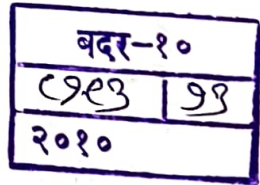 बदर-१०
८१९३ १३
२०१०